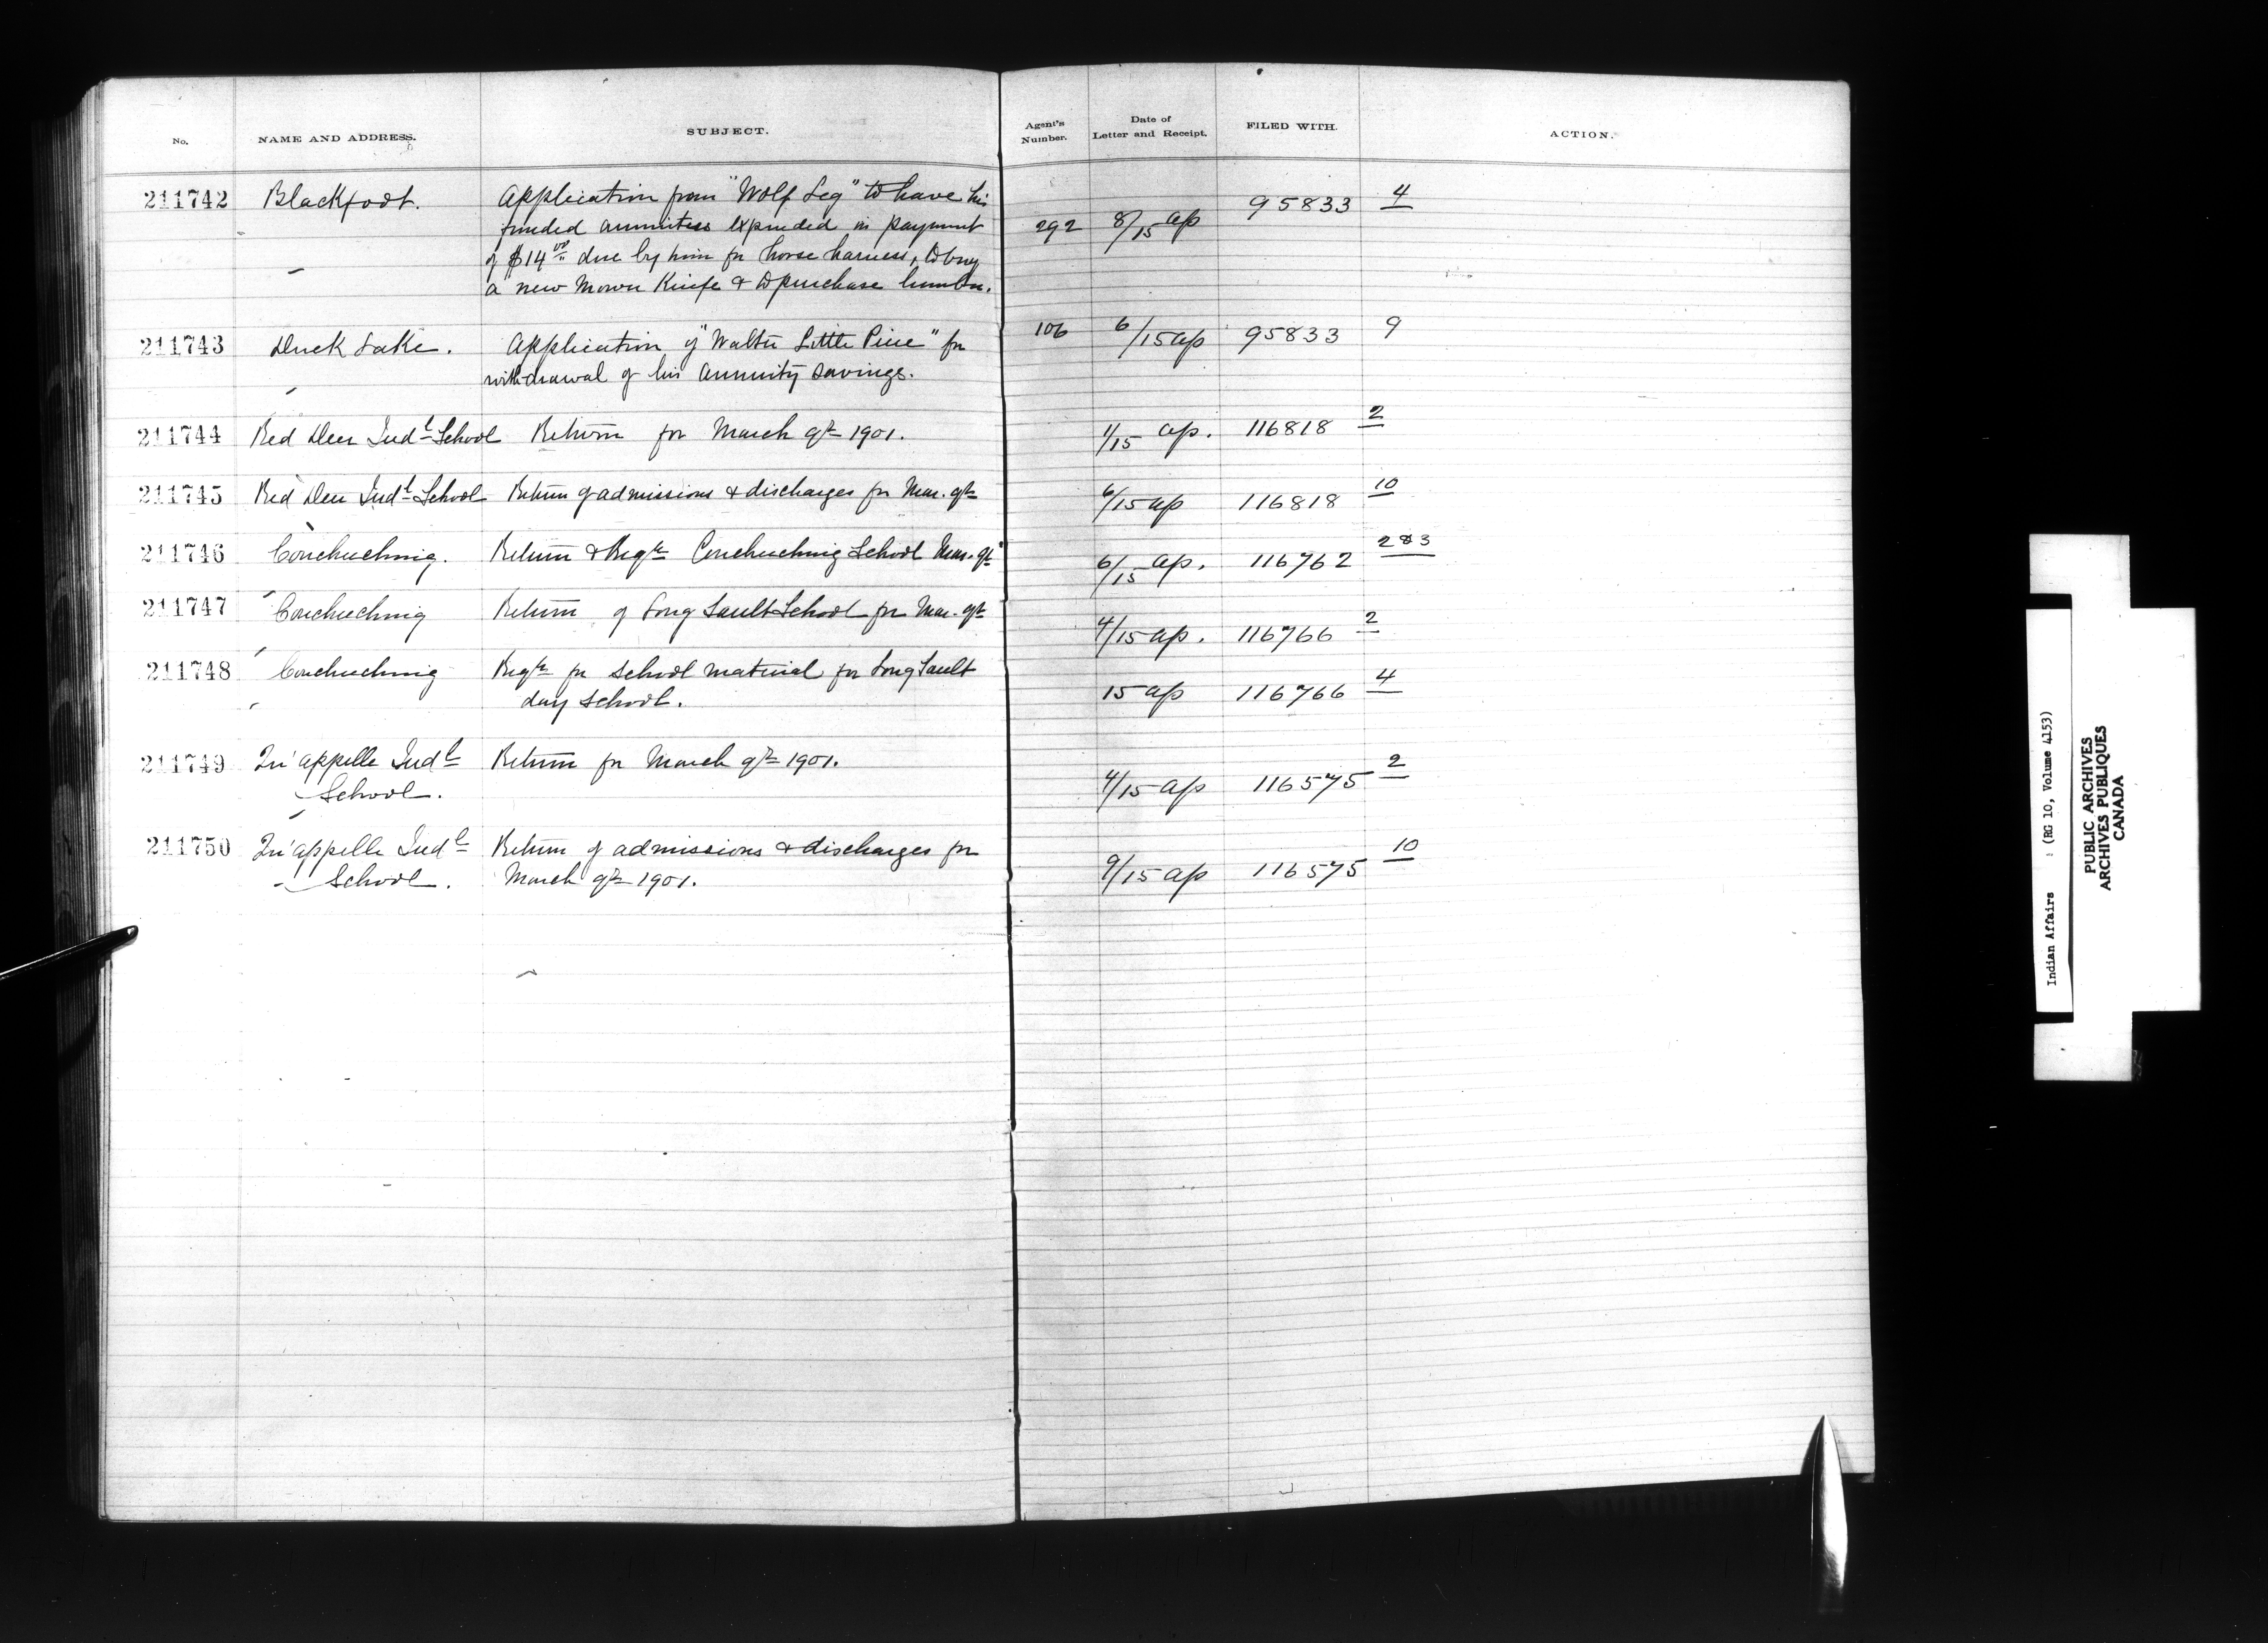 No. NAME AND ADDRESS. SUBJECT. Agent's Number. Date of Letter and Receipt. FILED WITH. ACTION.
211742 Blackfoot. Application from "Wolf Leg" to have his
funded annuities expended in payment 292 8/15 ap 95833 4
of $14.00 due by him for horse harness, to buy
a new Mower Knife & to purchase lumber.
211743 Duck Lake. Application of "Walter Little Pine" for 106 6/15 ap 95833 9
withdrawal of his annuity savings.
211744 Red Deer Indl School Return for March qr 1901. 1/15 ap. 116818 2
211745 Red Deer Indl School Return of admissions & discharges for Mar. qr 6/15 ap 116818 10
211746 Couchuching. Return & Reqn Couchuching School Mar. qr 6/15 ap. 116762 2&3
211747 Couchuching Return of Long Sault School for Mar. qr 4/15 ap. 116766 2
211748 Couchuching Reqn for school material for Long Sault
day school. 15 ap 116766 4
211749 Qu'appelle Indl Return for March qr 1901. 4/15 ap 116575 2
School.
211750 Qu'appelle Indl Return of admissions & discharges for
School. March qr 1901. 9/15 ap 116575 10
Indian Affairs : (RG 10, Volume 4153)
PUBLIC ARCHIVES
ARCHIVES PUBLIQUES
CANADA